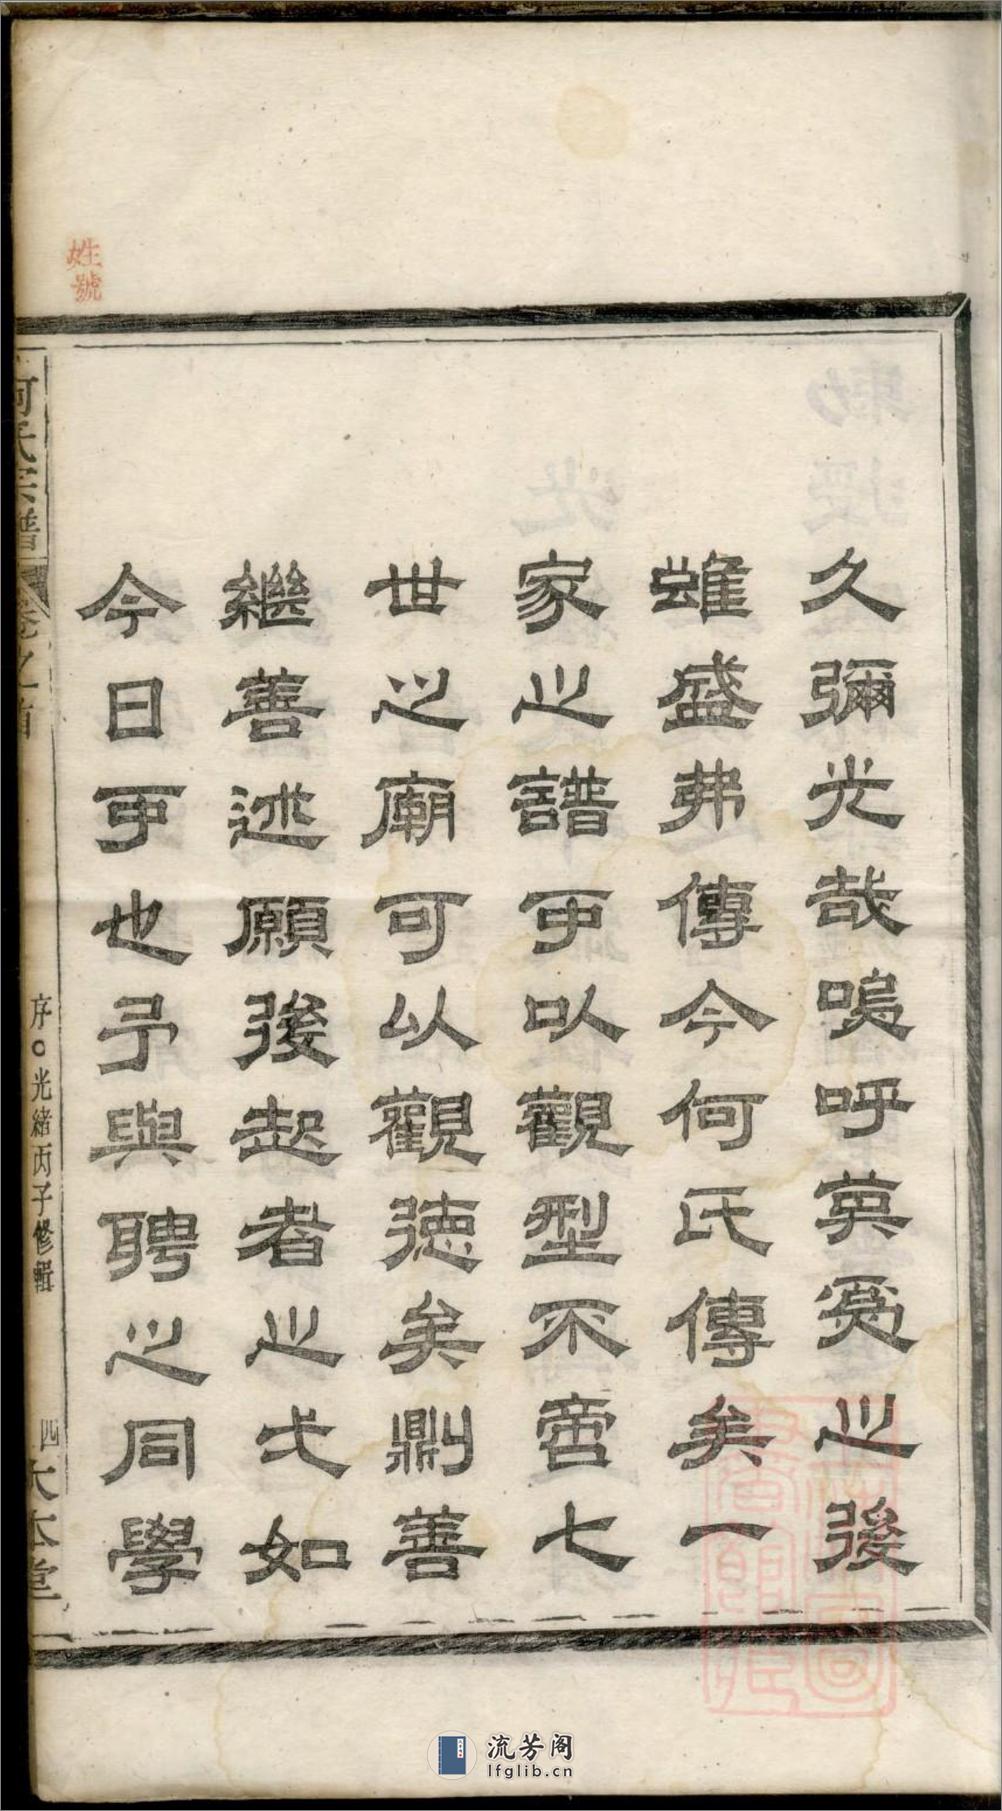 久彌光哉嗚呼莫爲之後
雖盛弗傳今何氏傳矣一
家之譜可以觀型不啻七
世之廟可以觀德矣剬善
繼善述願後起者之弋如
今日可也予與聘之同學
何氏宗譜
卷之首
序○光緒丙子修輯
四
大本堂
姓號
流芳阁
lfglib.cn